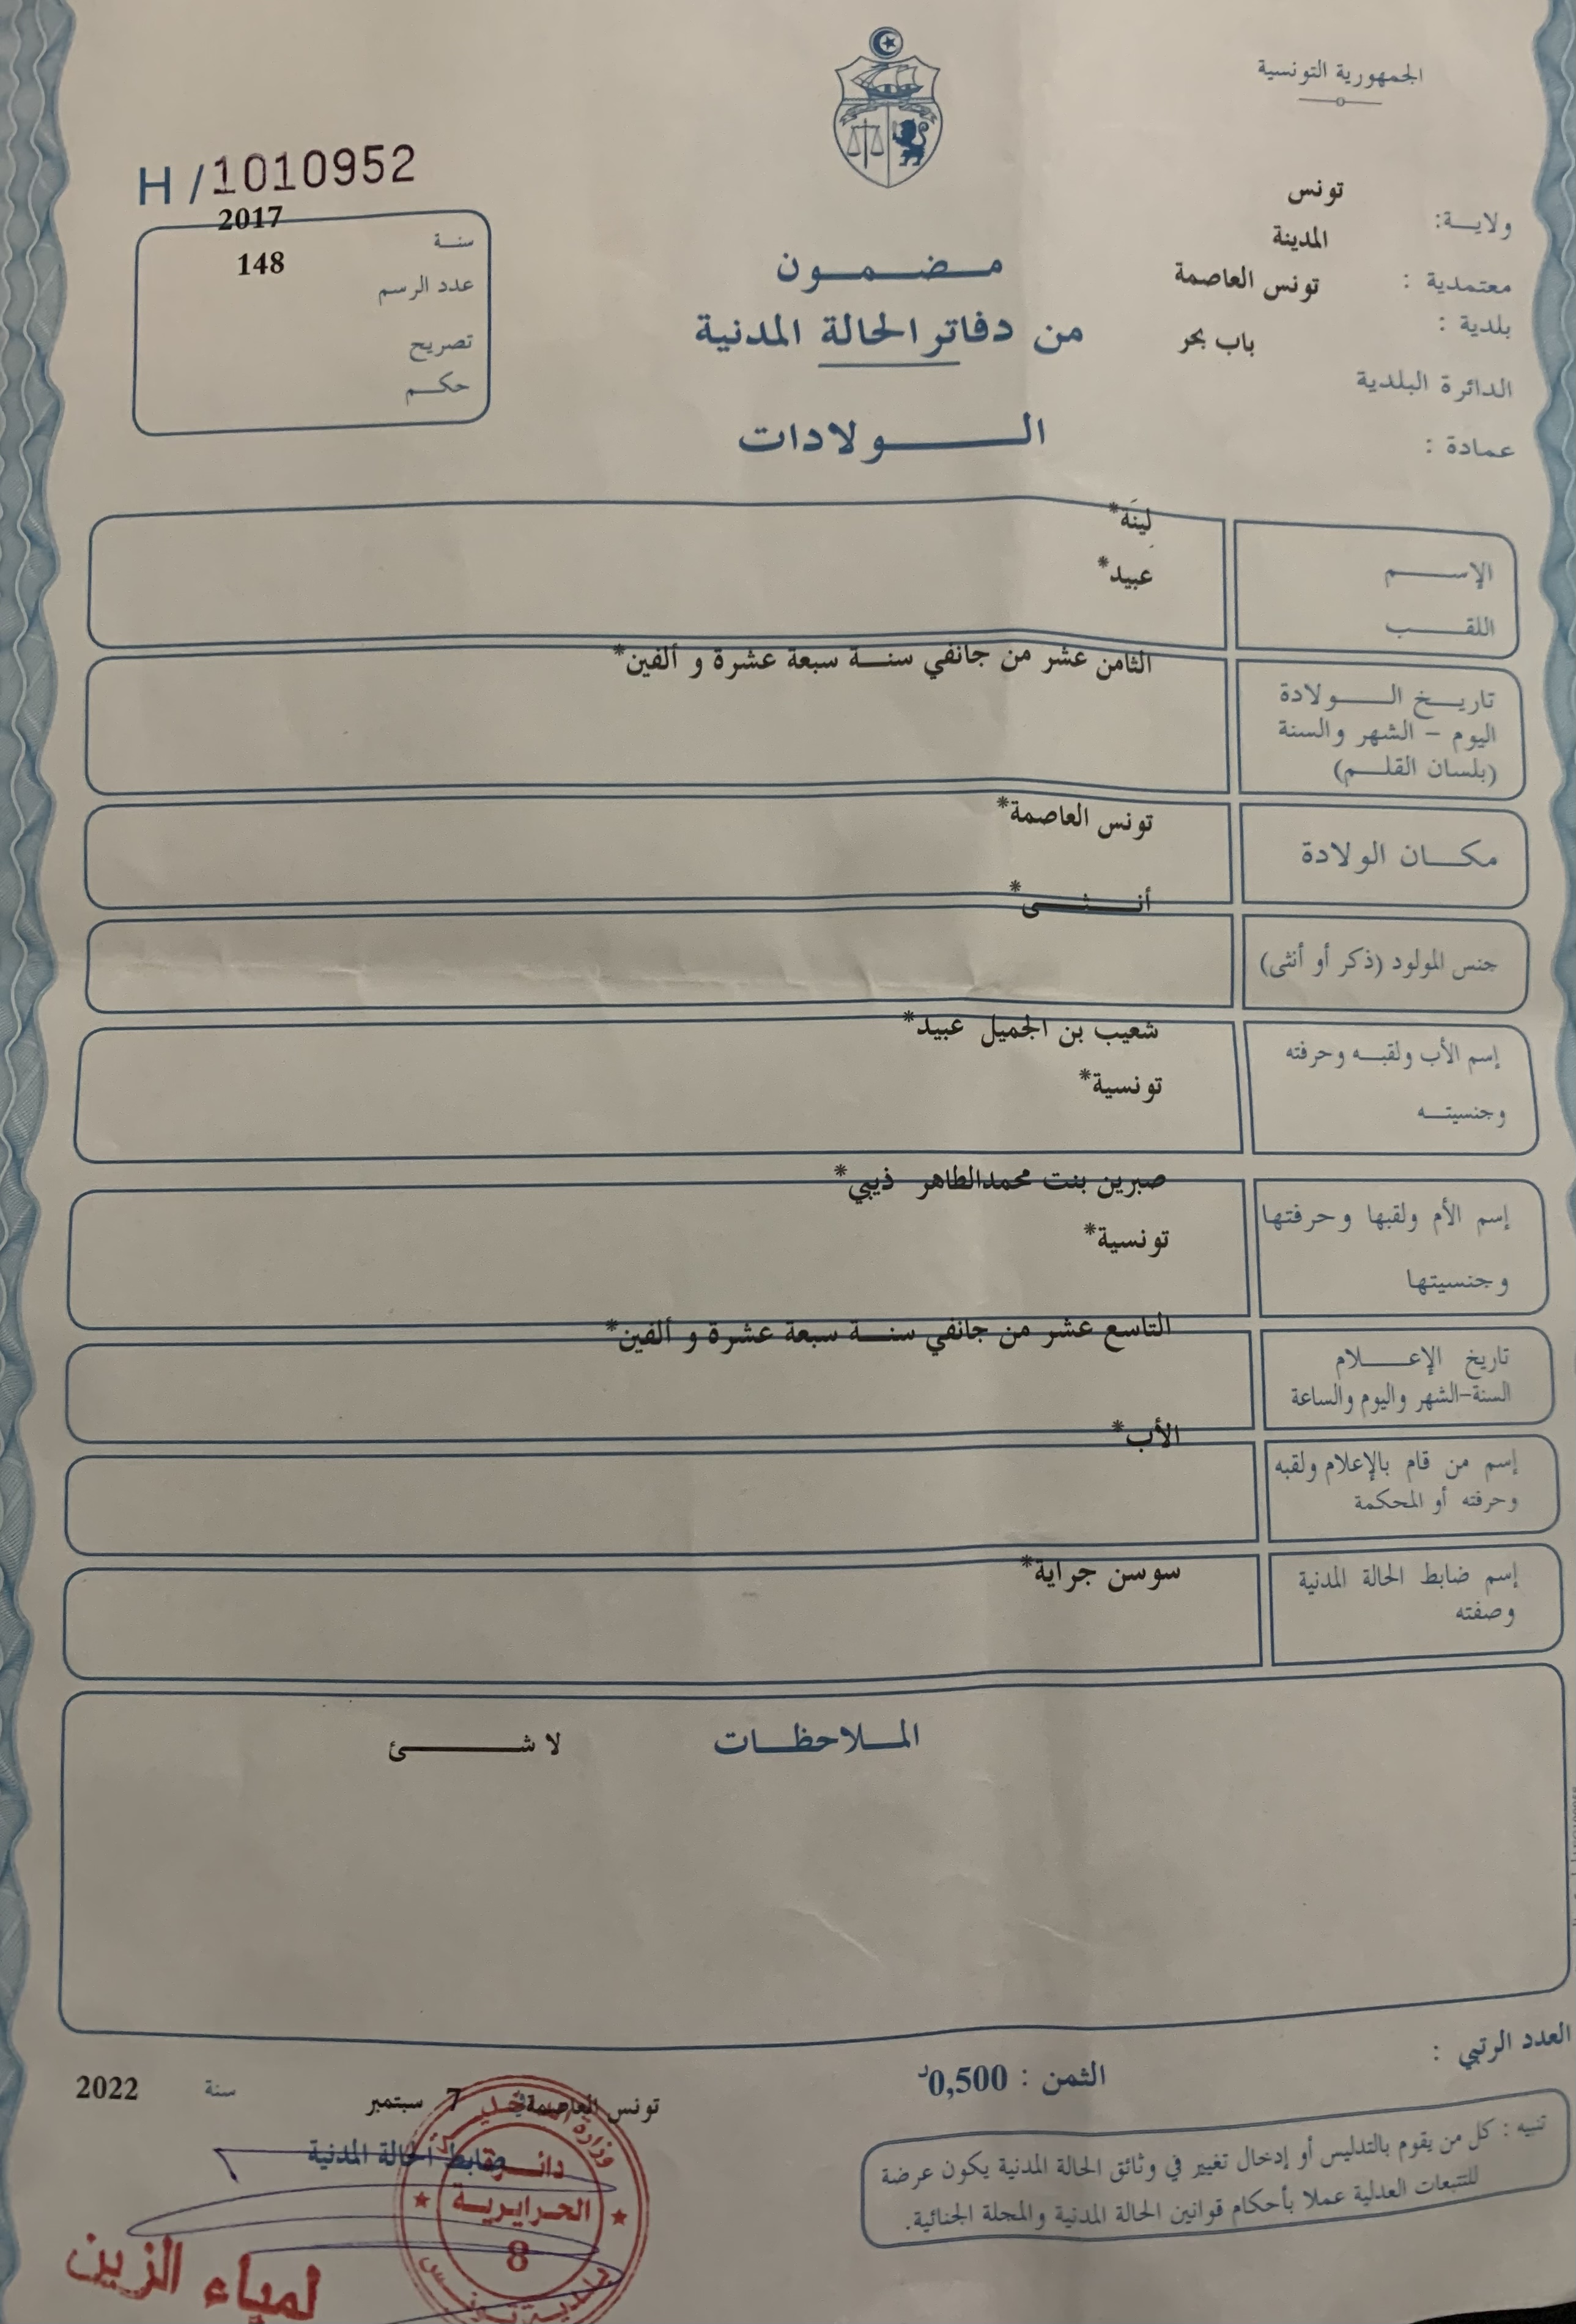 الجمهورية التونسية
ولايـــة: تونس
معتمدية : المدينة
بلدية : تونس العاصمة
الدائرة البلدية باب بحر
عمادة :
مـضـمـون
من دفاتر الحالة المدنية
الـولادات
H /1010952
سنة 2017
عدد الرسم 148
تصريح
حكم
الإسـم لينَة*
اللقب عبيد*
تاريخ الـولادة الثامن عشر من جانفي سنة سبعة عشرة و ألفين*
اليوم - الشهر والسنة
(بلسان القلم)
مكان الولادة تونس العاصمة*
جنس المولود (ذكر أو أنثى) أنثى*
إسم الأب ولقبه وحرفته شعيب بن الجميل عبيد*
وجنسيته تونسية*
إسم الأم ولقبها وحرفتها صبرين بنت محمدالطاهر ذيبي*
وجنسيتها تونسية*
تاريخ الإعلام التاسع عشر من جانفي سنة سبعة عشرة و ألفين*
السنة-الشهر واليوم والساعة
إسم من قام بالإعلام ولقبه الأب*
وحرفته أو المحكمة
إسم ضابط الحالة المدنية سوسن جراية*
وصفته
الملاحظات لا شئ
العدد الرتبي :
الثمن : 0,500د
تنبيه : كل من يقوم بالتدليس أو إدخال تغيير في وثائق الحالة المدنية يكون عرضة
للتتبعات العدلية عملا بأحكام قوانين الحالة المدنية والمجلة الجنائية.
تونس العاصمة 7 سبتمبر سنة 2022
ضابط الحالة المدنية
دائرة
الحرايرية
8
بلدية تونس
لمياء الزين